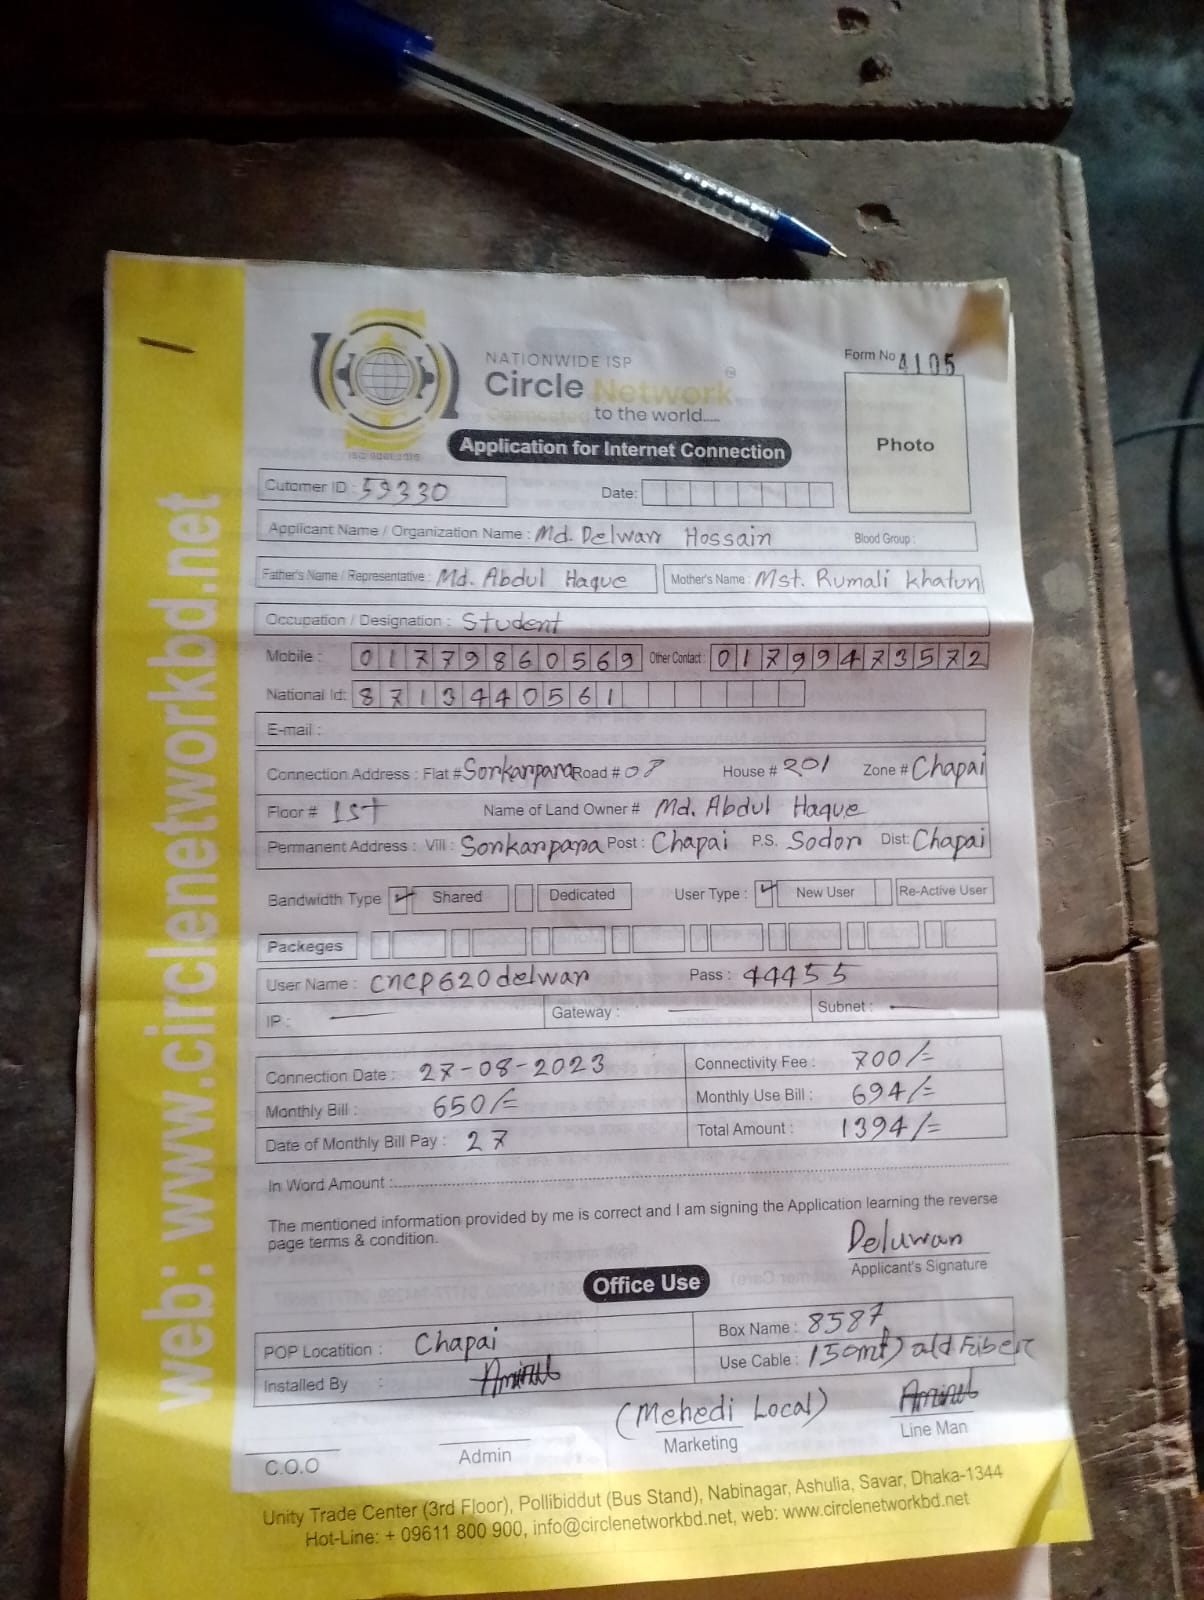 NATIONWIDE ISP
Circle Network
Connected to the world.....
ISO 9001:2015
Form No 4105
Photo
Application for Internet Connection
Cutomer ID : 59330 Date:
Applicant Name / Organization Name : Md. Delwar Hossain Blood Group :
Father's Name / Representative : Md. Abdul Haque Mother's Name : Mst. Rumali Khatun
Occupation / Designation : Student
Mobile : 01779860569 Other Contact : 01799473572
National Id: 8713440561
E-mail :
Connection Address : Flat # Sonkarpara Road # 07 House # 201 Zone # Chapai
Floor # 1st Name of Land Owner # Md. Abdul Haque
Permanent Address : Vill : Sonkarpara Post : Chapai P.S. Sodor Dist: Chapai
Bandwidth Type ✓ Shared Dedicated User Type : ✓ New User Re-Active User
Packeges
User Name : cncp620delwar Pass : 44455
IP : — Gateway : — Subnet : —
Connection Date : 27-08-2023 Connectivity Fee : 700/=
Monthly Bill : 650/= Monthly Use Bill : 694/=
Date of Monthly Bill Pay : 27 Total Amount : 1394/=
In Word Amount :
The mentioned information provided by me is correct and I am signing the Application learning the reverse
page terms & condition.
Deluwan
Applicant's Signature
Office Use
POP Locatition : Chapai Box Name : 8587
Installed By : Aminul Use Cable : 150mt) old Fiber
(Mehedi Local) Aminul
C.O.O Admin Marketing Line Man
Unity Trade Center (3rd Floor), Pollibiddut (Bus Stand), Nabinagar, Ashulia, Savar, Dhaka-1344
Hot-Line: + 09611 800 900, info@circlenetworkbd.net, web: www.circlenetworkbd.net
web: www.circlenetworkbd.net